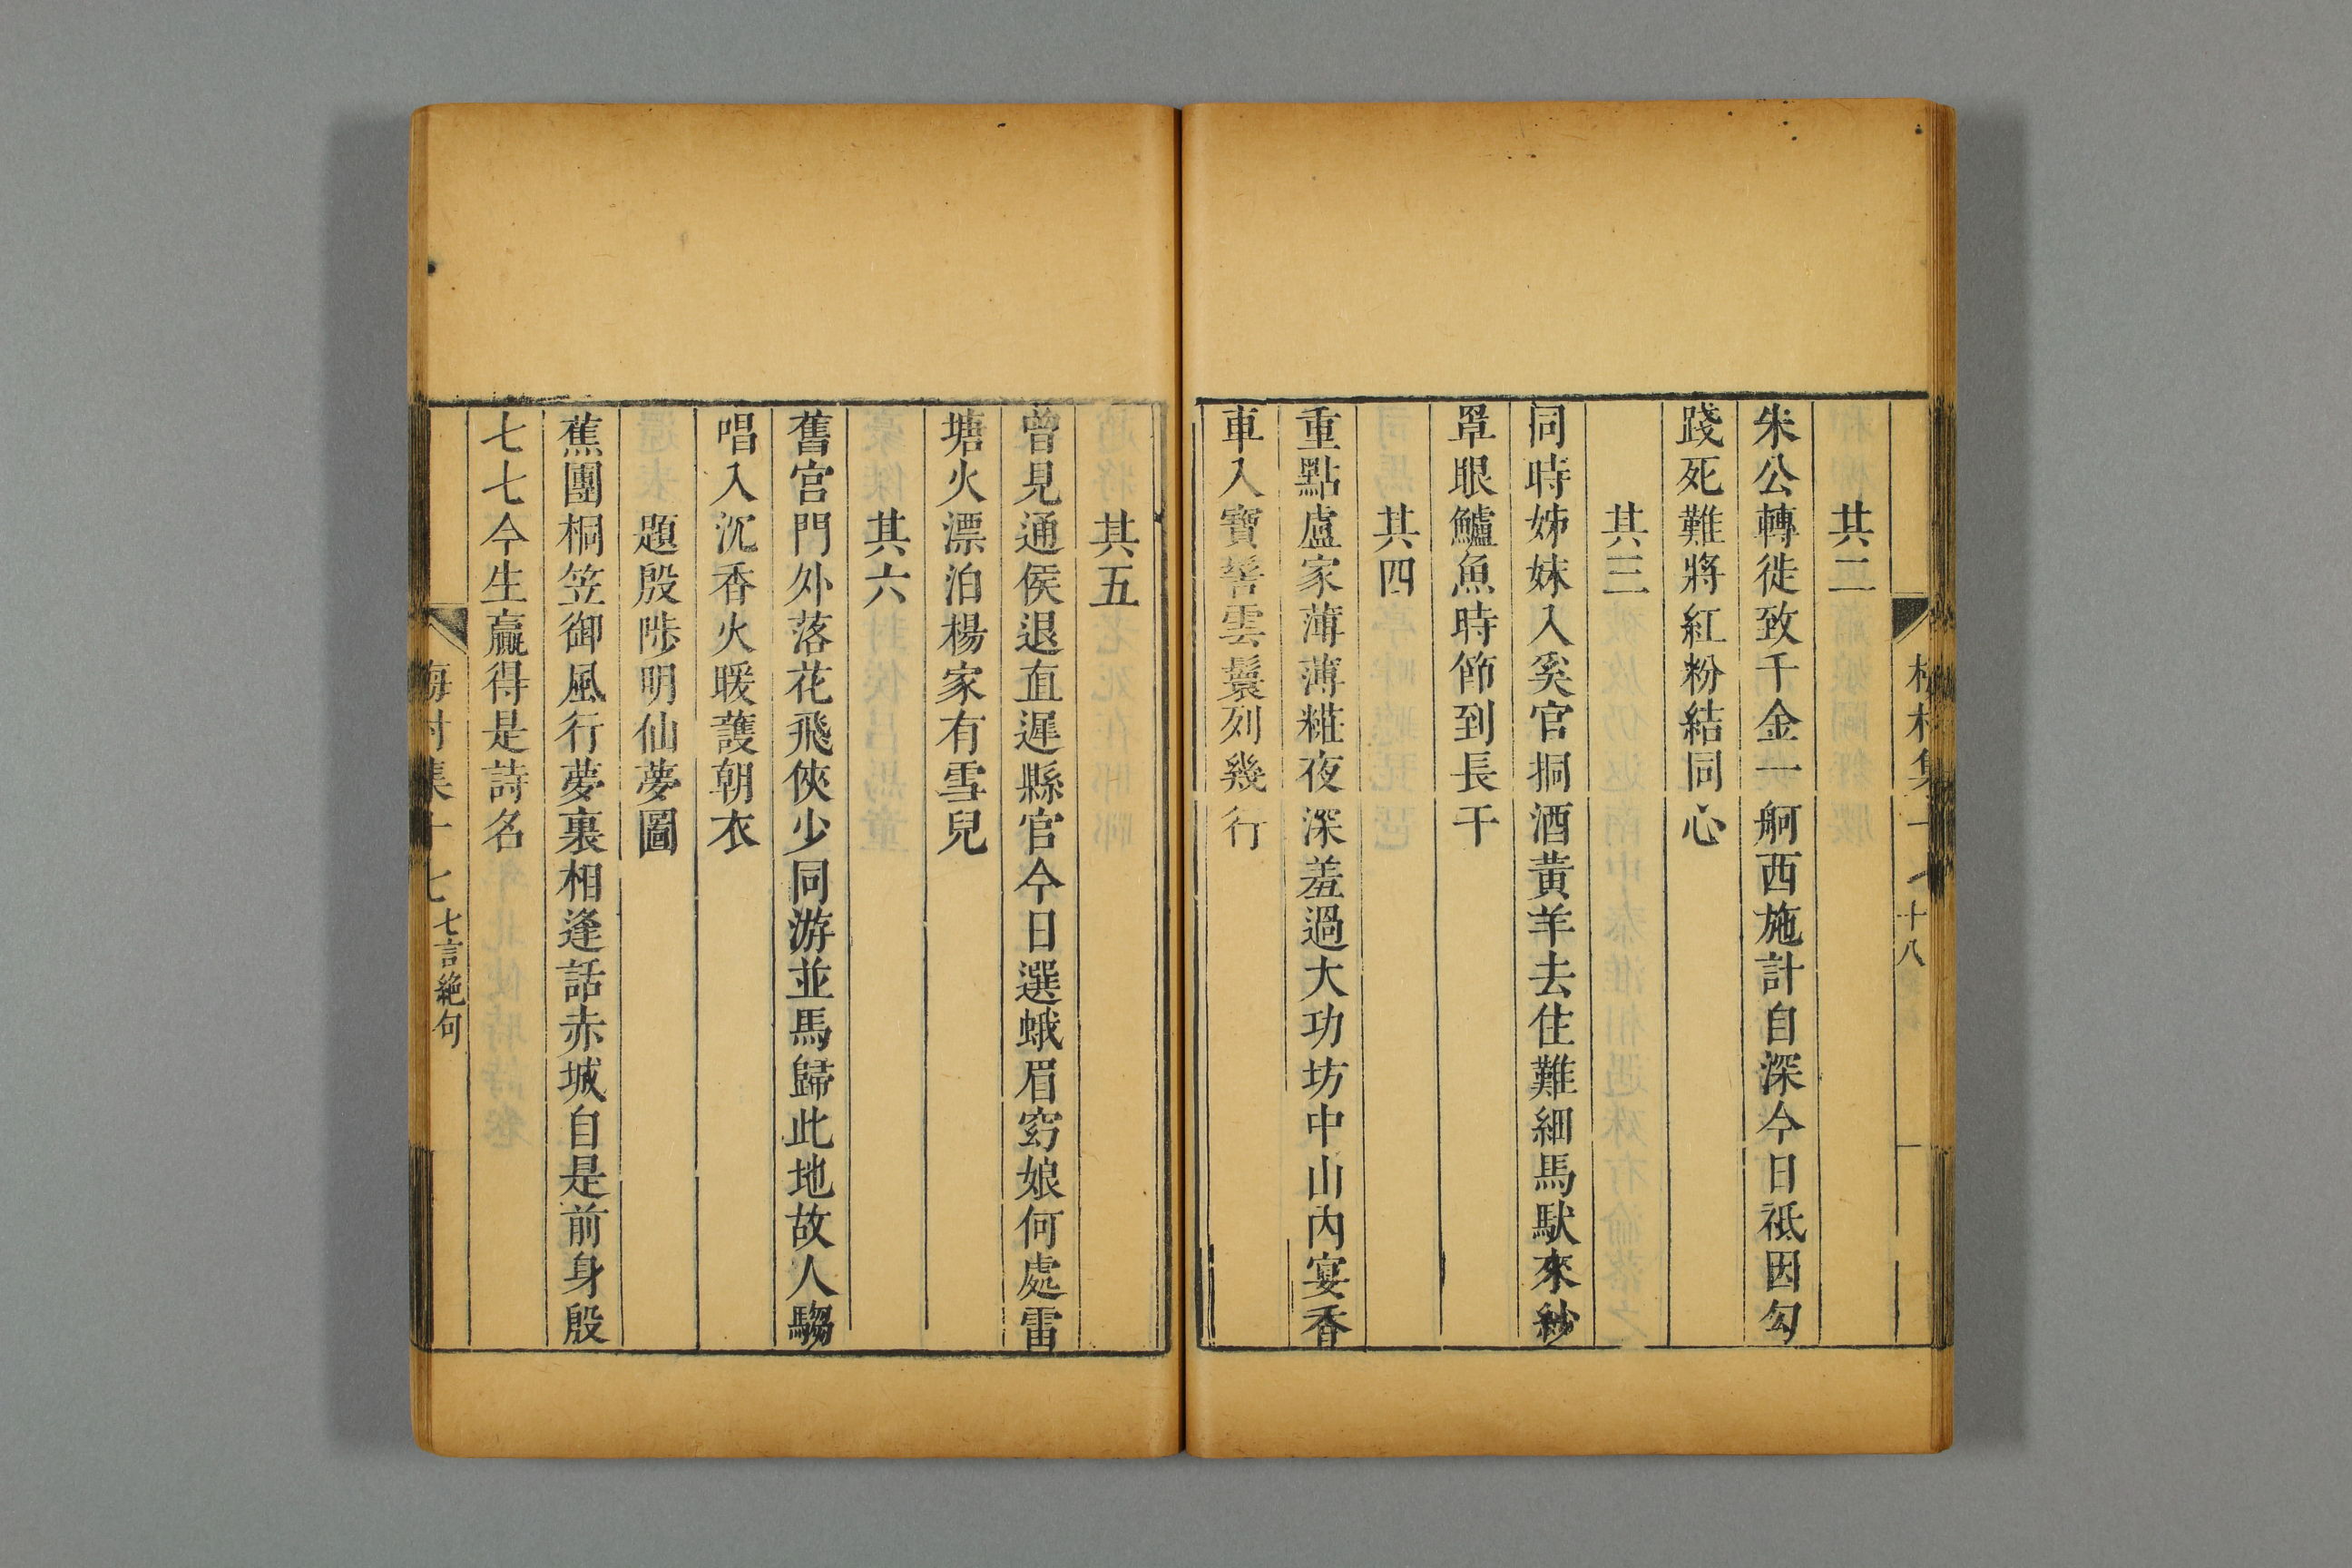 其二
朱公轉徙致千金一舸西施計自深今日祗因勾
踐死難將紅粉結同心
其三
同時姊妹入奚官挏酒黃羊去住難細馬馱來紗
罩眼鱸魚時節到長干
其四
重點盧家薄薄糚夜深羞過大功坊中山內宴香
車入寶髻雲鬟列幾行
十八
其五
曾見通侯退直遲縣官今日選蛾眉窈娘何處雷
塘火漂泊楊家有雪兒
其六
舊宮門外落花飛俠少同游並馬歸此地故人騶
唱入沉香火暖護朝衣
題殷陟明仙夢圖
蕉團桐笠御風行夢裏相逢話赤城自是前身殷
七七今生贏得是詩名
梅村集十七 七言絶句